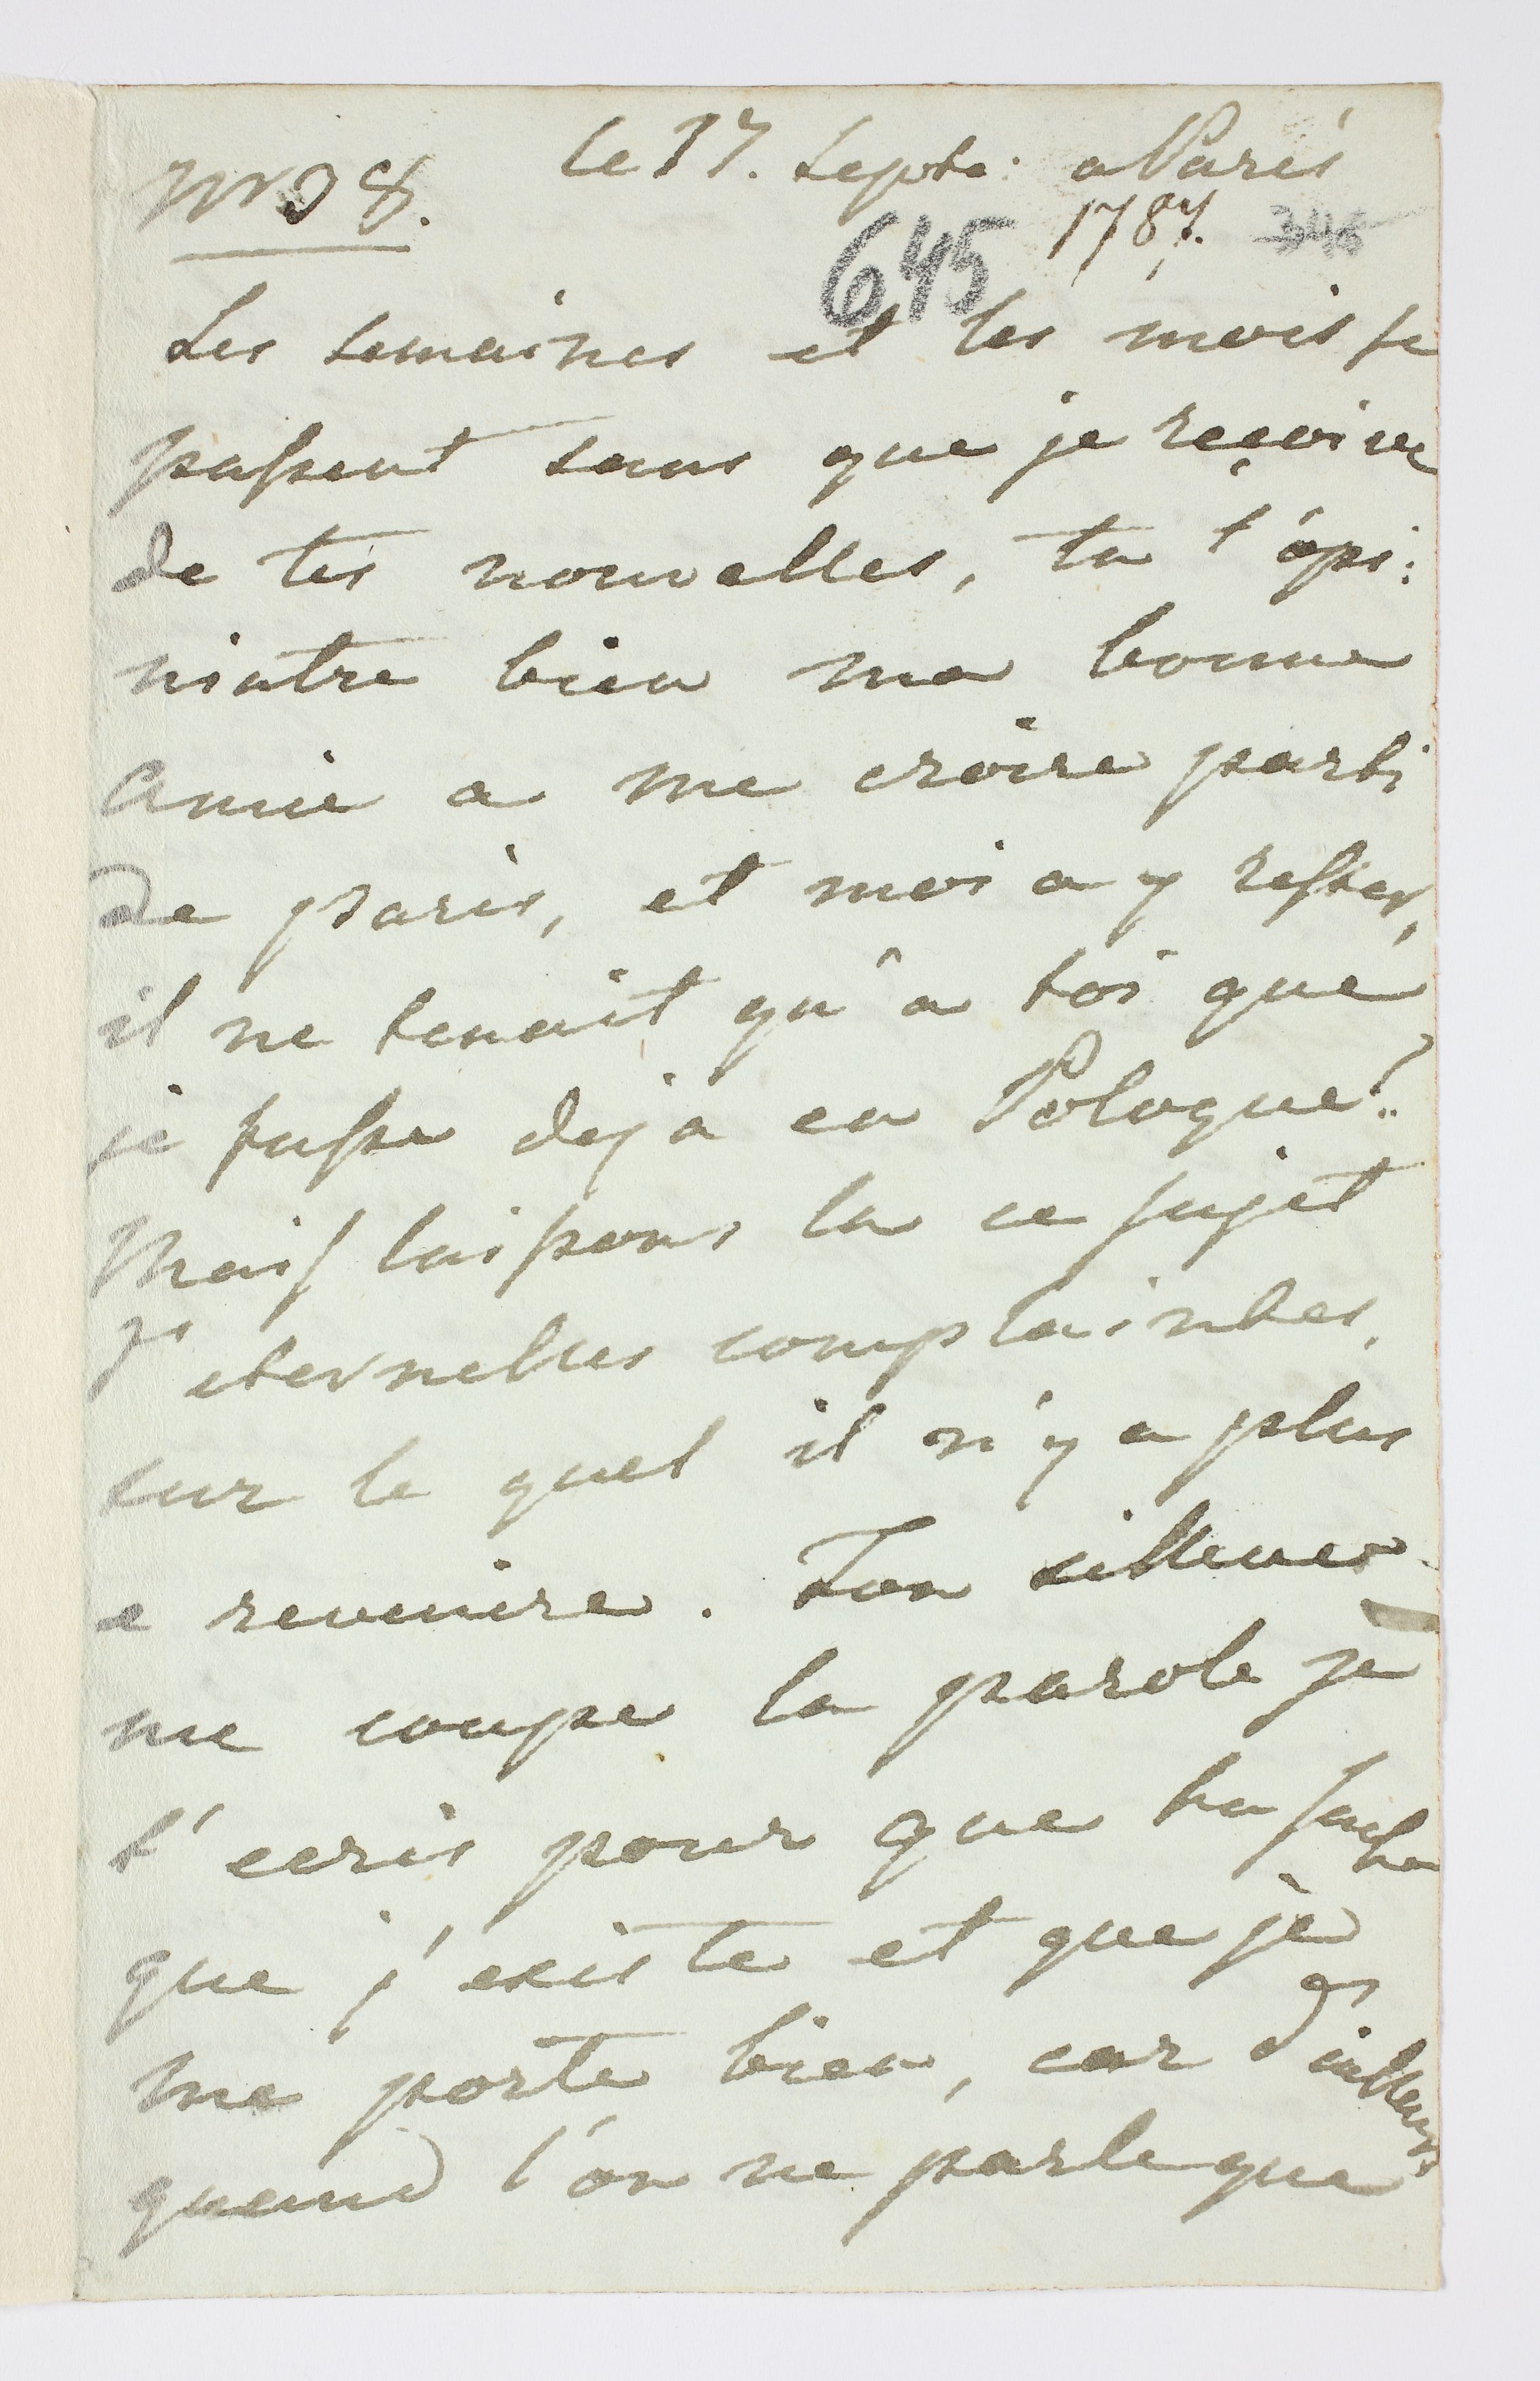 Nro 8. le 17. Septe: a Paris
645 1787. 345
Les semaines et les mois se
passent sans que je reçoive
de tes nouvelles, tu t'opi:
niatre bien ma bonne
Amie a me croire parti
de paris, et moi a y rester,
il ne tenait qu'a toi que
je fusse deja en Pologne!..
Mais laissons la ce sujet
d'eternelles complaintes,
sur le quel il n'y a plus
a revenire. Ton sillence
me coupe la parole je
t'ecris pour que tu sache
que j'existe et que je
me porte bien, car d'ailleurs
quand l'on ne parle que